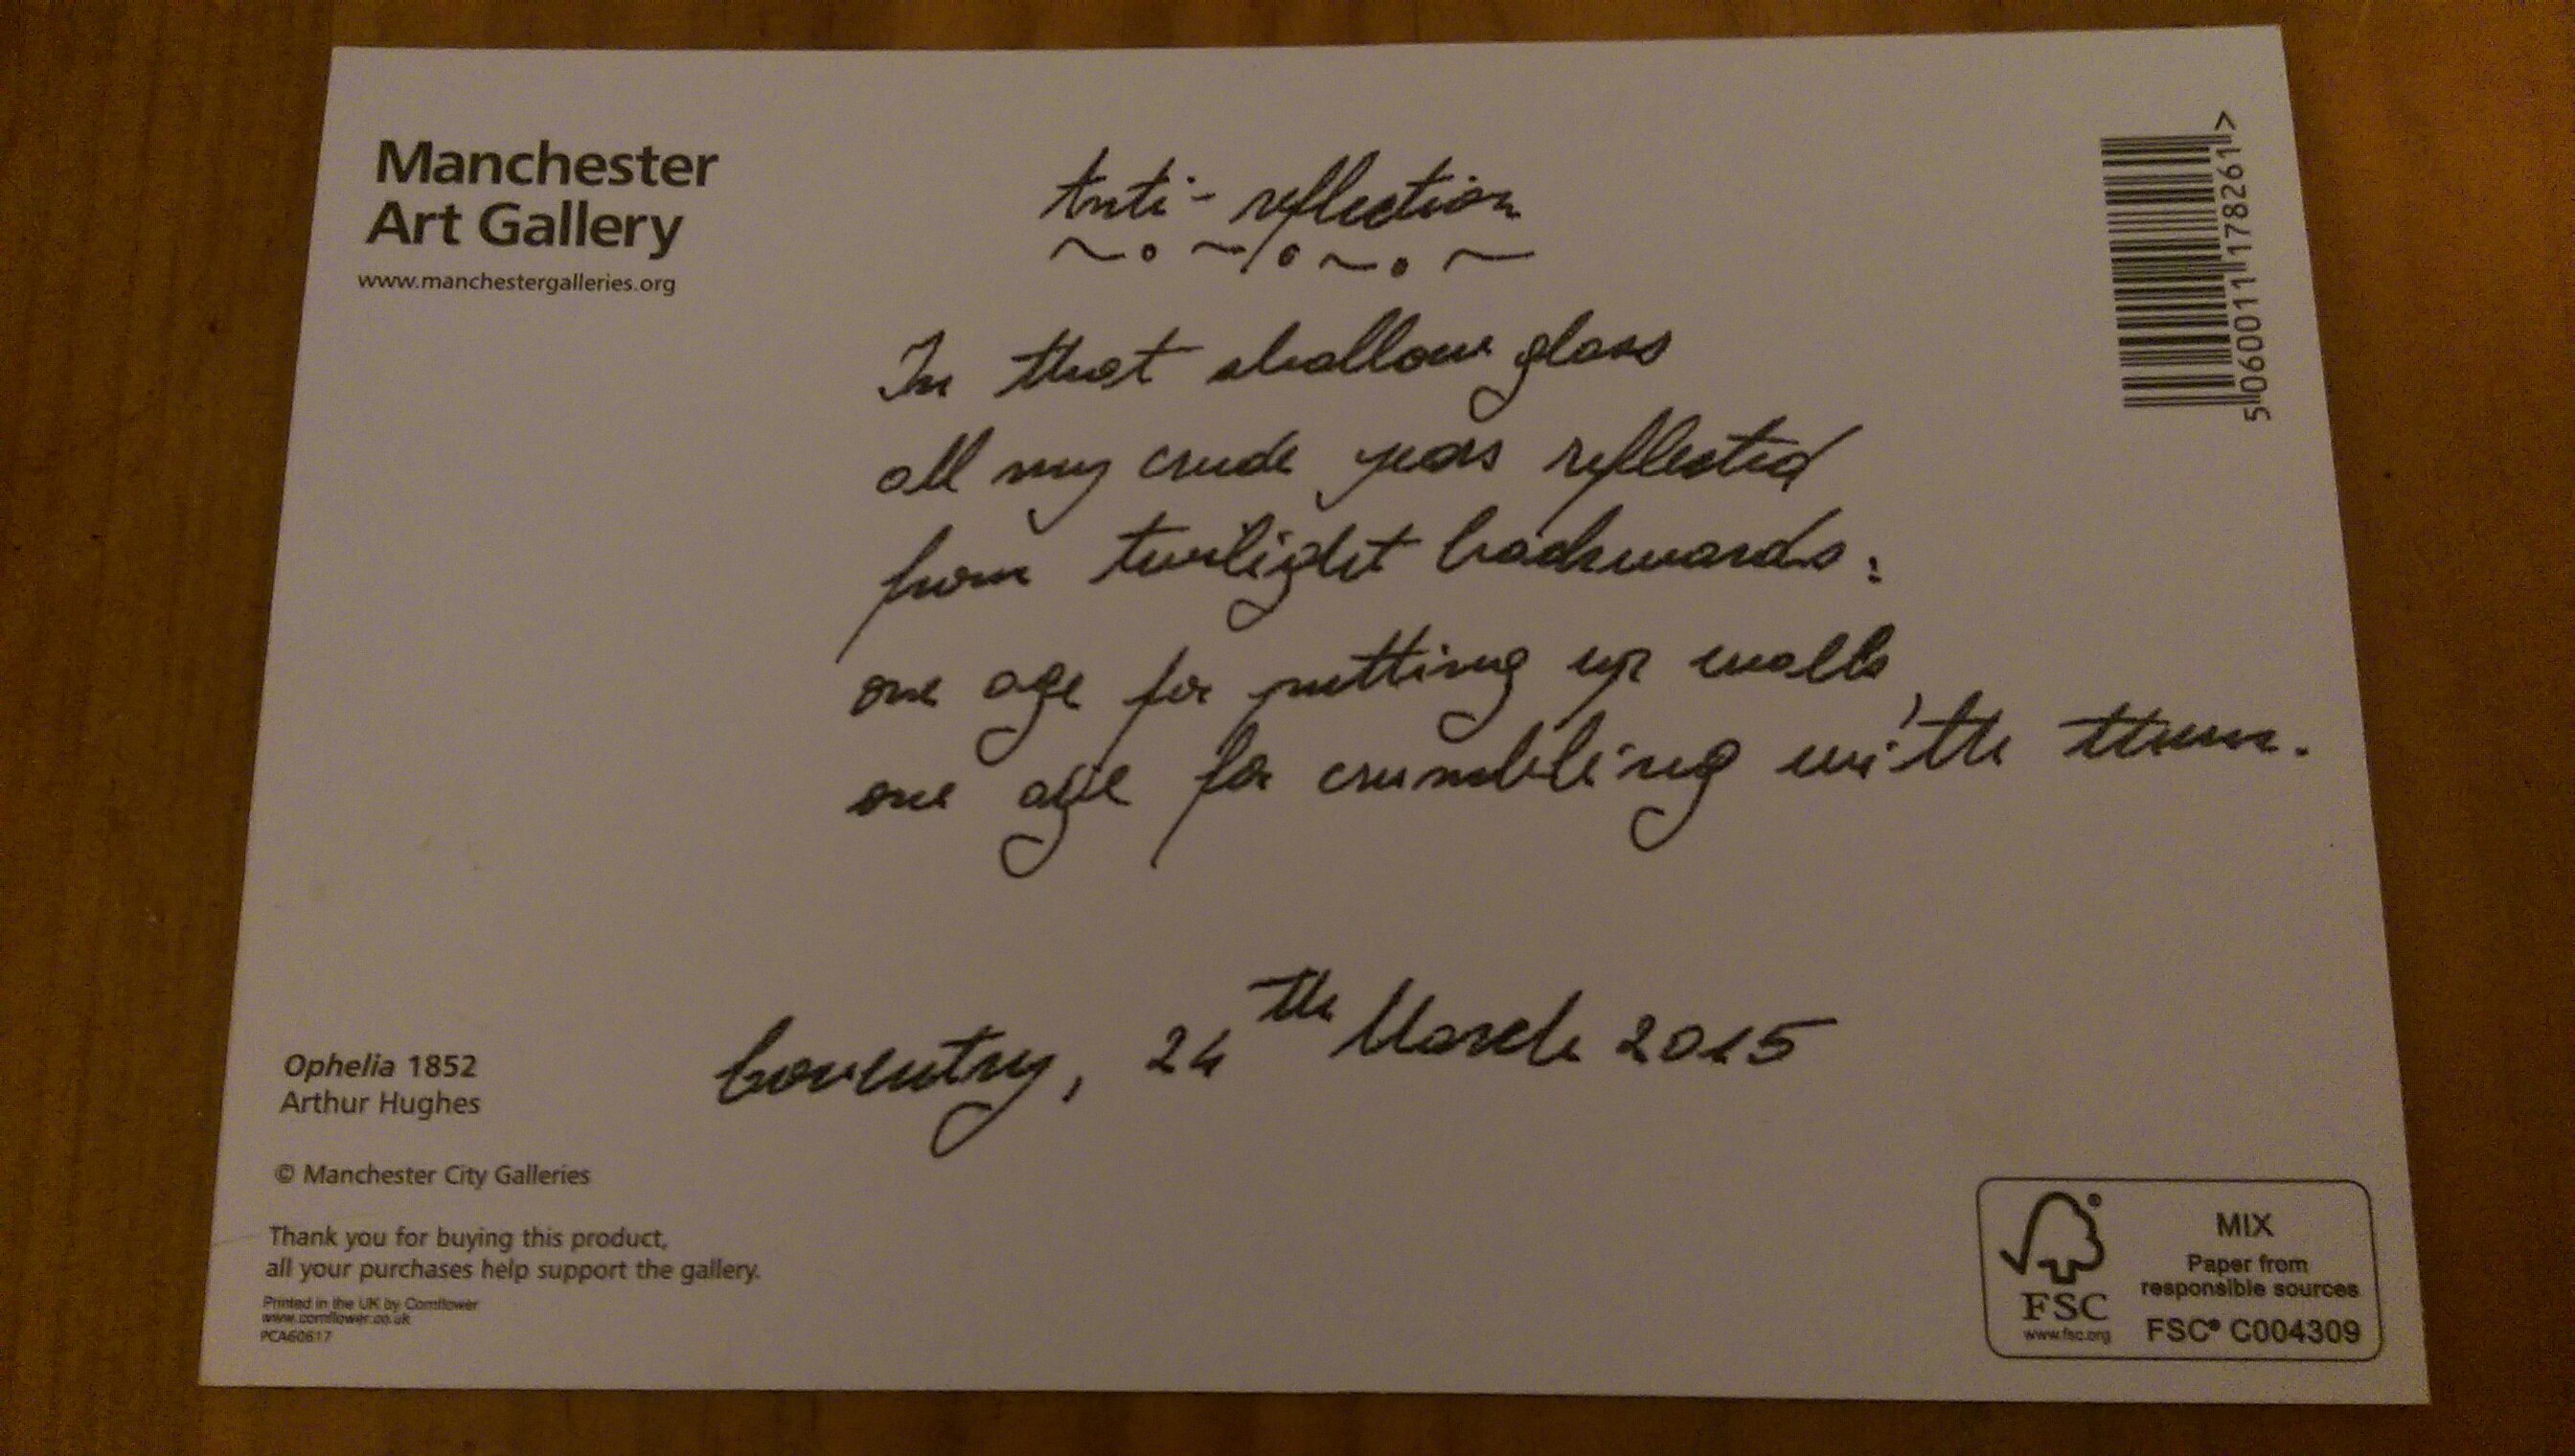 Manchester
Art Gallery
www.manchestergalleries.org
Anti-reflection
In that shallow glass
all my crude years reflected
from twilight backwards:
one age for putting up walls,
one age for crumbling with them.
Coventry, 24th March 2015
5 060011 178261 >
Ophelia 1852
Arthur Hughes
© Manchester City Galleries
Thank you for buying this product,
all your purchases help support the gallery.
Printed in the UK by Cornflower
www.cornflower.co.uk
PCA60617
FSC
www.fsc.org
MIX
Paper from
responsible sources
FSC® C004309